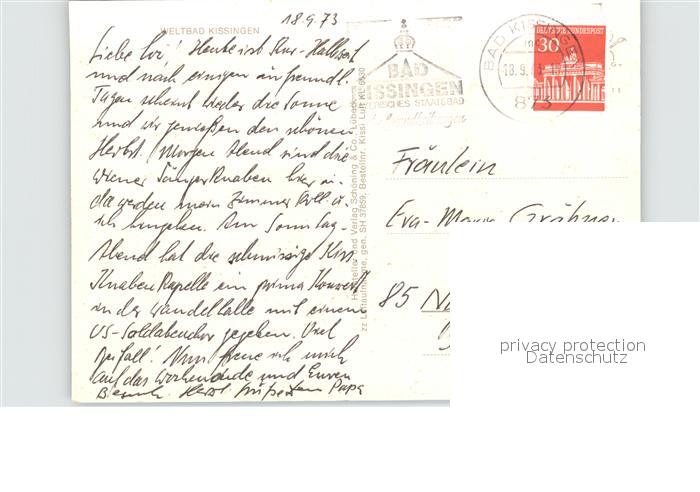 18.9.73
WELTBAD KISSINGEN
Liebe Evi! Heute ist Kur-Halbzeit
und nach einigen unfreundl.
Tagen scheint wieder die Sonne
und wir genießen den schönen
Herbst. Morgen Abend sind die
Wiener Sängerknaben hier u.
da werden mein Zimmerkoll. u.
ich hingehen. Am Sonntag-
Abend hat die schmissige Kiss.
Knaben Kapelle ein prima Konzert
in der Wandelhalle mit einem
US-Soldatenchor gegeben. Viel
Beifall. Nun freue ich mich
auf das Wochenende und Euren
Besuch. Herzl. Papa
BAD
KISSINGEN
BAYERISCHES STAATSBAD
BAD KISSINGEN
18.9.73
873
DEUTSCHE BUNDESPOST
30
Hersteller und Verlag Schöning & Co., Lübeck
Luftaufnahme, gen. SH 37/859, Bestellnr. Kissi Luft
Fräulein
Eva-Maria
85
privacy protection
Datenschutz